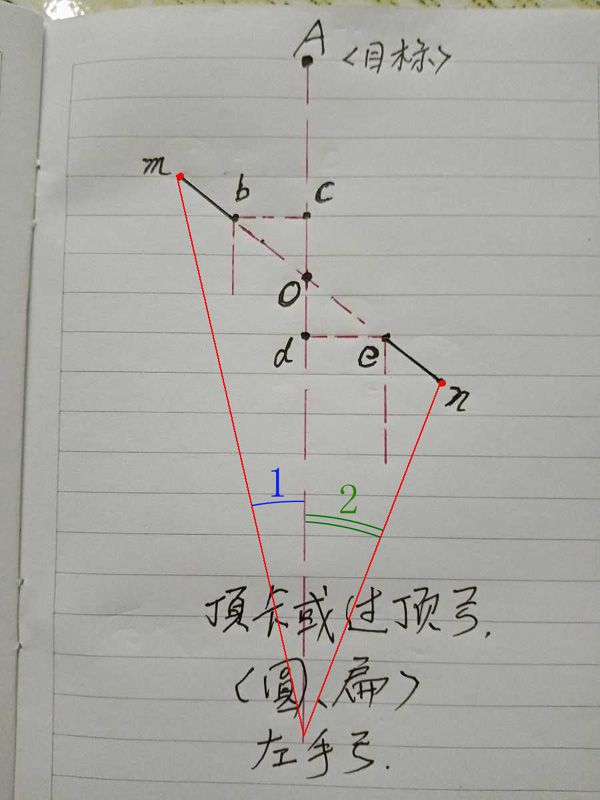 A <目标>
m
b
c
O
d
e
n
1
2
頂卡或过顶弓.
(圆、扁)
左手弓.